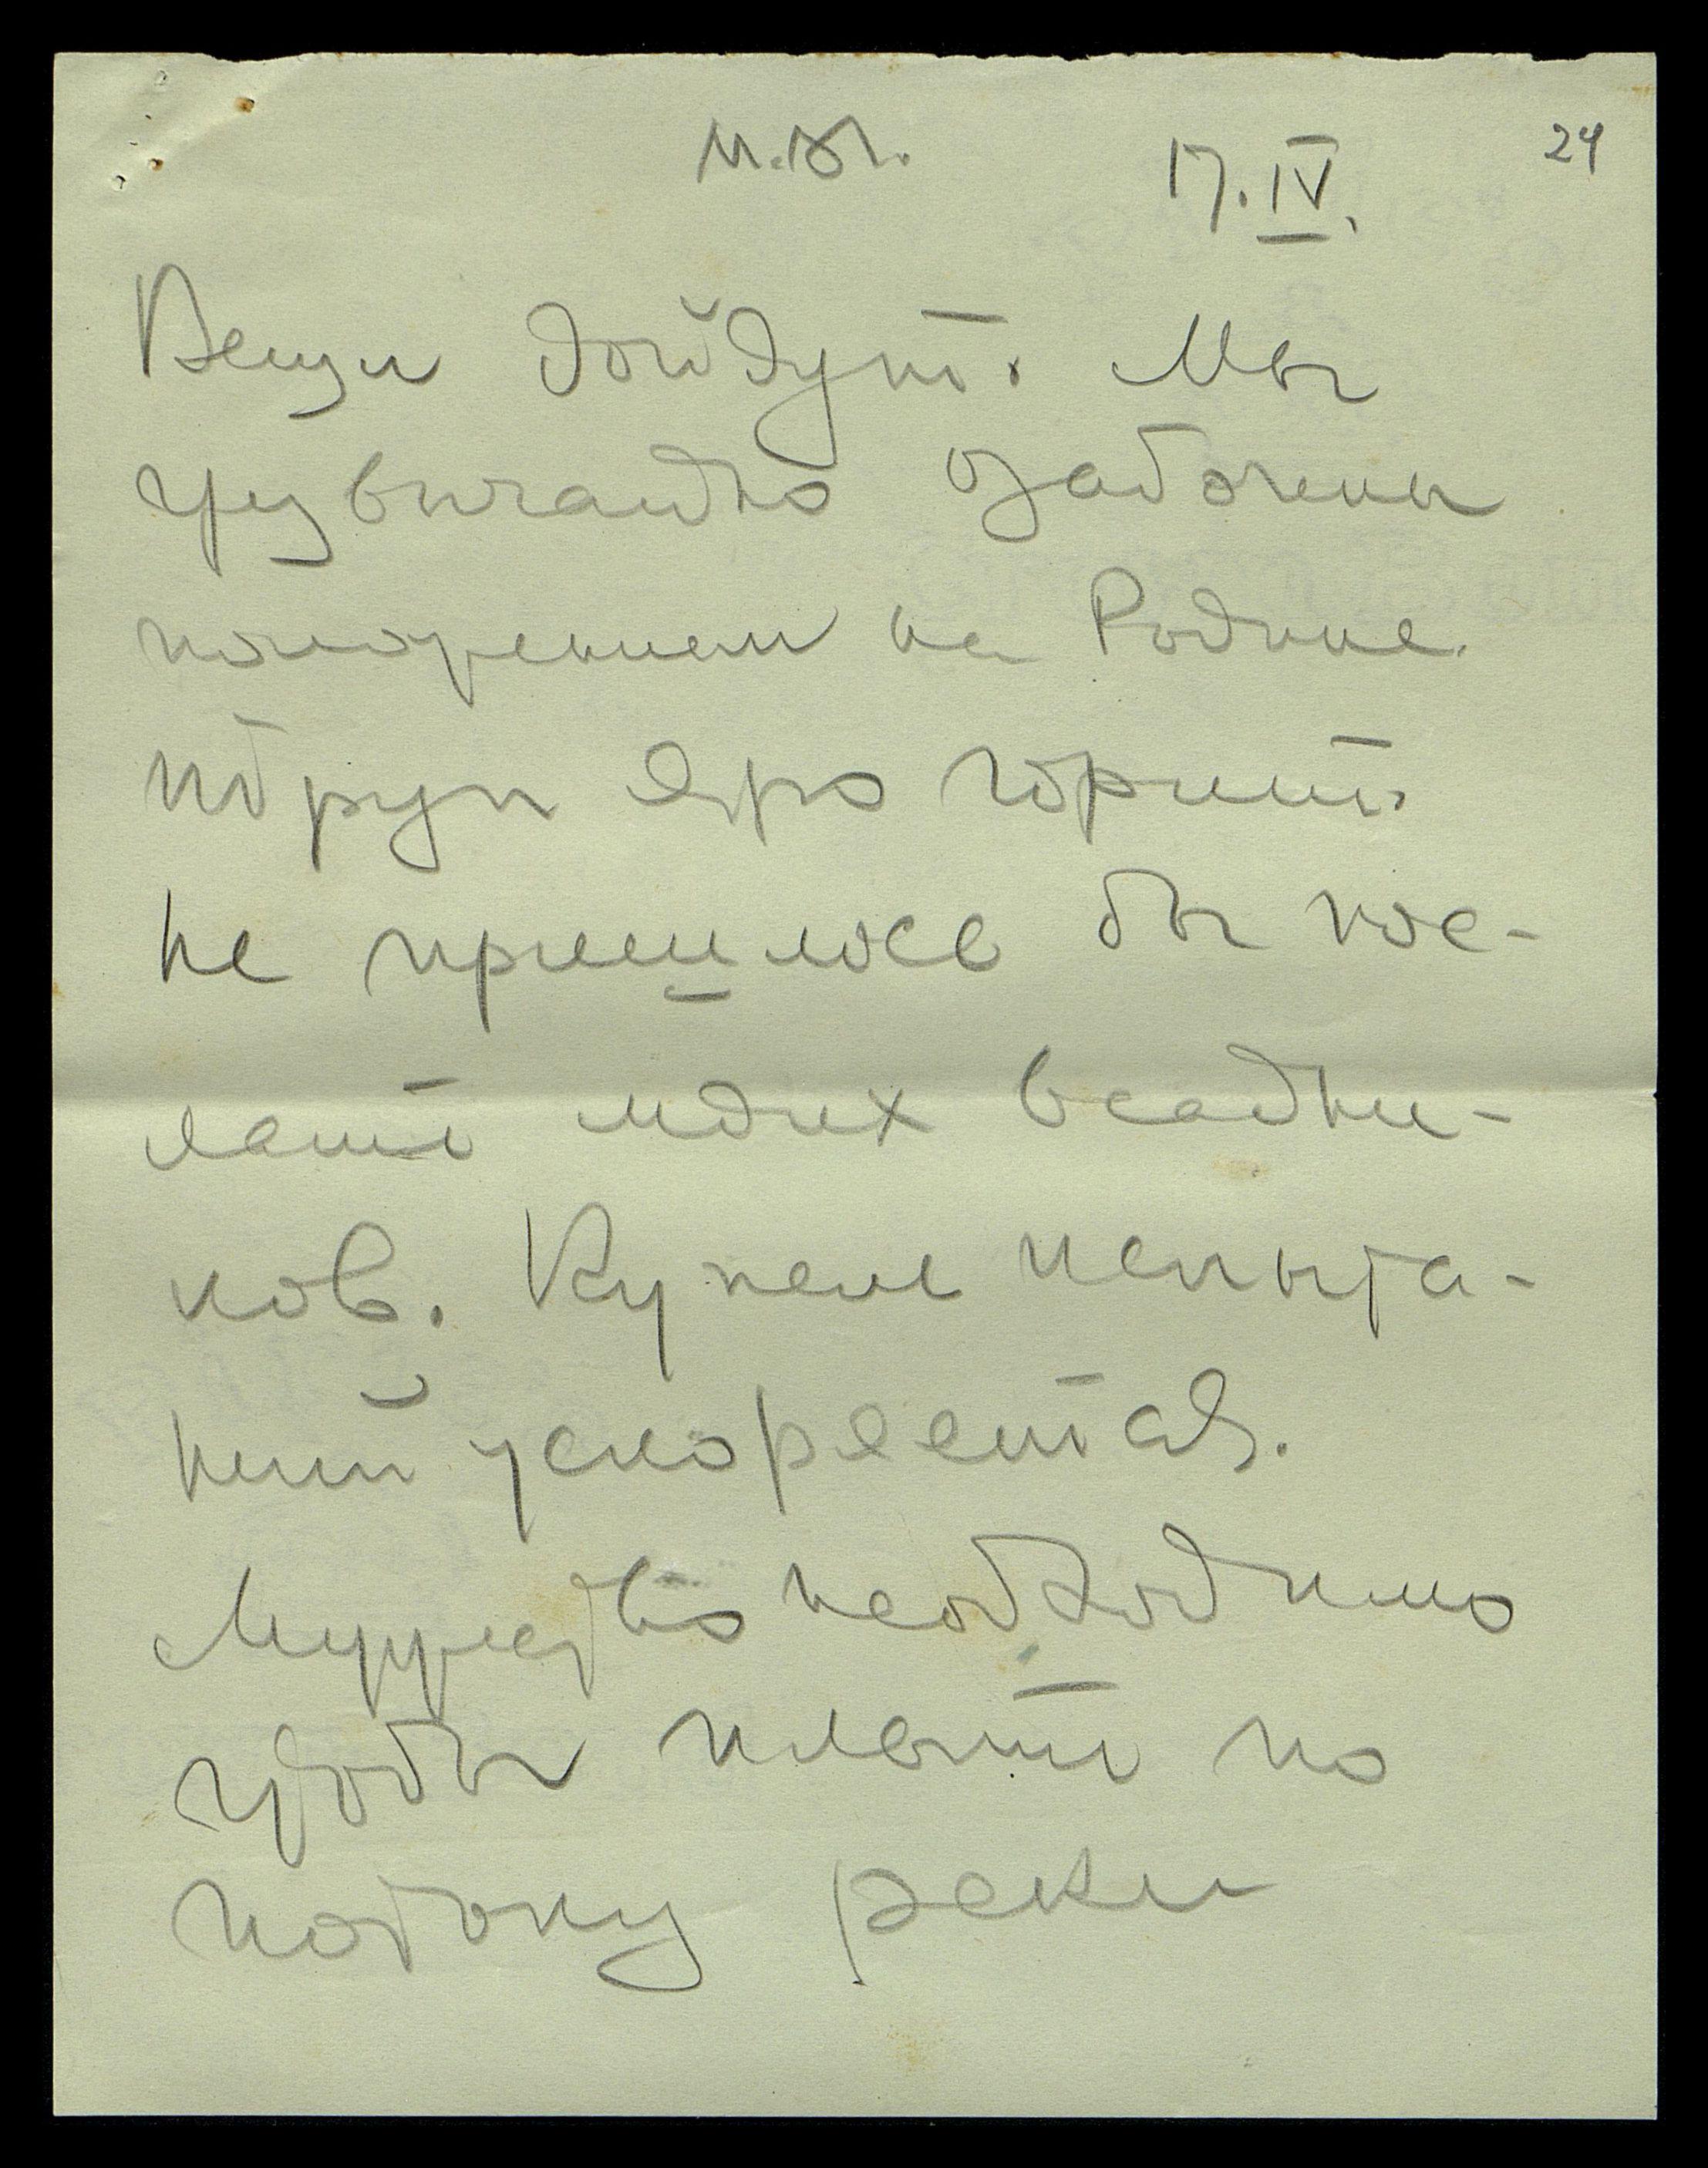 М.М. 17.IV. 24
Вещи дойдут. Мы
чрезвычайно озабочены
положением на Родине.
ярко горит.
не пришлось бы пос-
лать моих всадни-
ков. Купель испыта-
ний ускоряется.
Мужество необходимо
чтобы плыть по
потоку реки